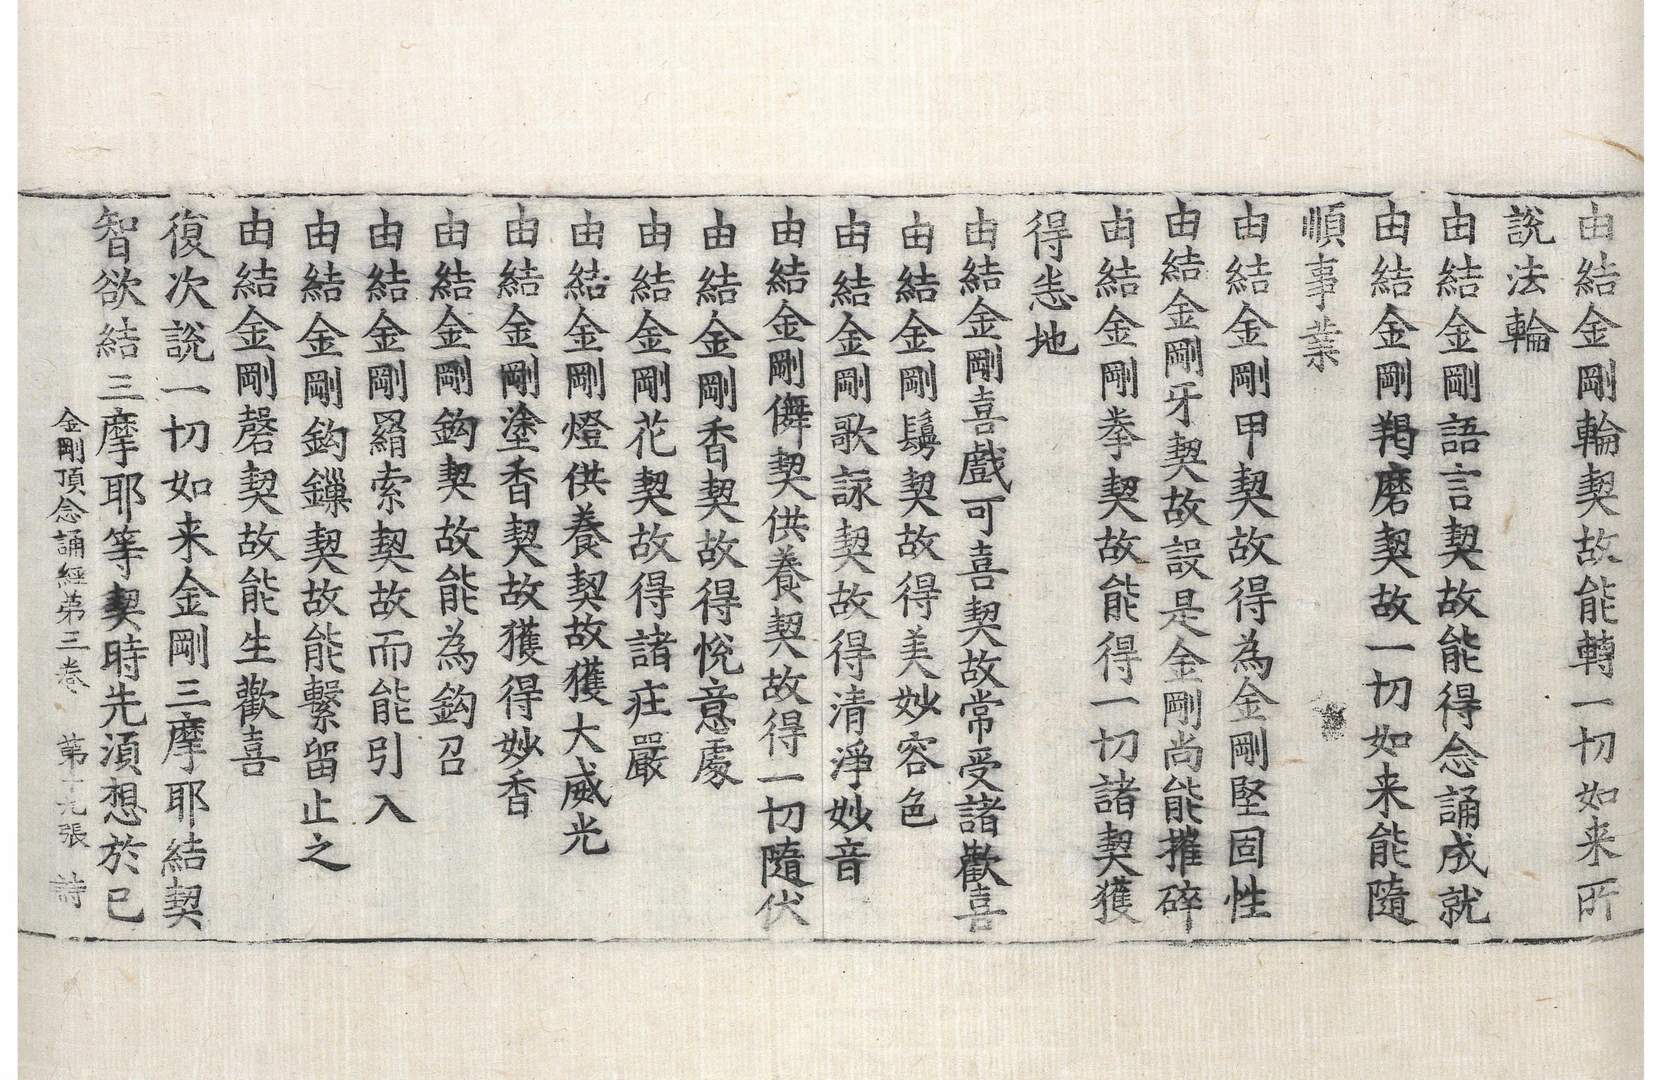 由結金剛輪契故能轉一切如来所
說法輪
由結金剛語言契故能得念誦成就
由結金剛羯磨契故一切如来能隨
順事業
由結金剛甲契故得為金剛堅固性
由結金剛牙契故設是金剛尚能摧碎
由結金剛拳契故能得一切諸契獲
得恙地
由結金剛喜戲可喜契故常受諸歡喜
由結金剛鬘契故得美妙容色
由結金剛歌詠契故得清淨妙音
由結金剛儛契供養契故得一切隨伏
由結金剛香契故得悅意處
由結金剛花契故得諸疘嚴
由結金剛燈供養契故獲大威光
由結金剛塗香契故獲得妙香
由結金剛鈎契故能為鈎召
由結金剛羂索契故而能引入
由結金剛鈎鏁契故能繫留止之
由結金剛磬契故能生歡喜
復次說一切如来金剛三摩耶結契
智欲結三摩耶等契時先湏想於己
金剛頂念誦經第三卷 第十九張 詩